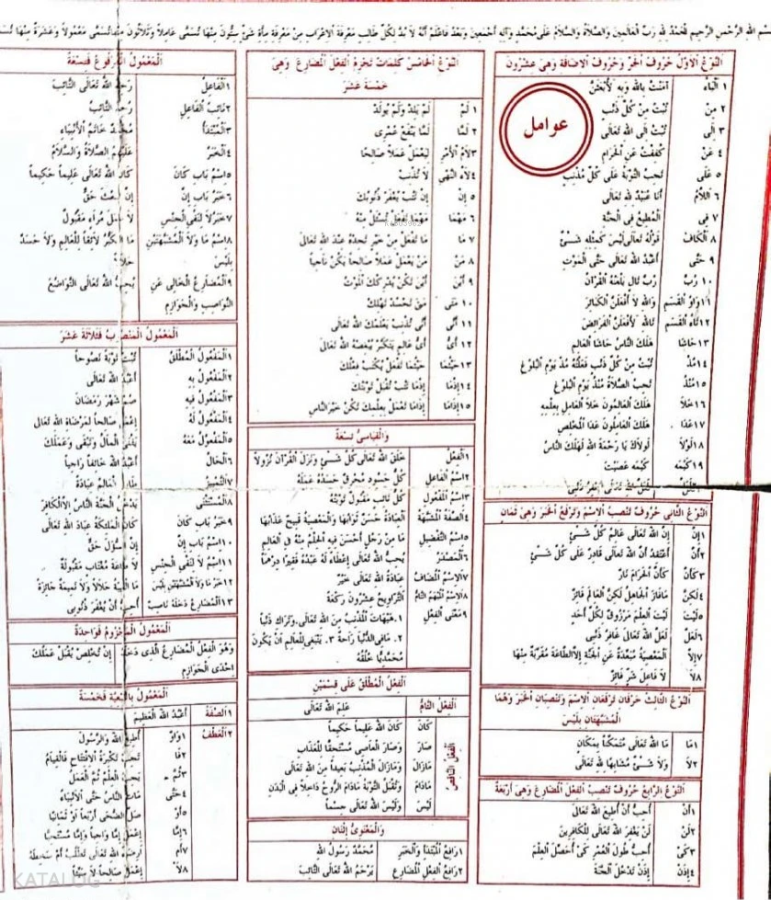 بِسْمِ اللّٰهِ الرَّحْمٰنِ الرَّحِيمِ اَلْحَمْدُ لِلّٰهِ رَبِّ الْعَالَمِينَ وَالصَّلَاةُ وَالسَّلَامُ عَلٰى مُحَمَّدٍ وَآلِهِ اَجْمَعِينَ وَبَعْدُ فَاعْلَمْ اَنَّهُ لَا بُدَّ لِكُلِّ طَالِبِ مَعْرِفَةِ الْاِعْرَابِ مِنْ مَعْرِفَةِ مِاَةِ شَيْءٍ سِتُّونَ مِنْهَا تُسَمّٰى عَامِلًا وَثَلَاثُونَ مِنْهَا تُسَمّٰى مَعْمُولًا وَعَشَرَةٌ مِنْهَا
اَلنَّوْعُ الْاَوَّلُ حُرُوفُ الْجَرِّ وَحُرُوفُ الْاِضَافَةِ وَهِيَ عِشْرُونَ
عوامل
١ اَلْبَاءُ آمَنْتُ بِاللّٰهِ وَبِهِ لَاُبْعَثَنَّ
٢ مِنْ تُبْتُ مِنْ كُلِّ ذَنْبٍ
٣ اِلٰى تُبْتُ اِلَى اللّٰهِ تَعَالٰى
٤ عَنْ كَفَفْتُ عَنِ الْحَرَامِ
٥ عَلٰى تَجِبُ التَّوْبَةُ عَلٰى كُلِّ مُذْنِبٍ
٦ اَللَّامُ اَنَا عَبْدٌ لِلّٰهِ تَعَالٰى
٧ فِى اَلْمُطِيعُ فِى الْجَنَّةِ
٨ اَلْكَافُ قَوْلُهُ تَعَالٰى لَيْسَ كَمِثْلِهِ شَيْءٌ
٩ حَتّٰى اَعْبُدُ اللّٰهَ تَعَالٰى حَتَّى الْمَوْتِ
١٠ رُبَّ رُبَّ تَالٍ يَلْعَنُهُ الْقُرْآنُ
١١ وَاوُ الْقَسَمِ وَاللّٰهِ لَا اَفْعَلَنَّ الْكَبَائِرَ
١٢ تَاءُ الْقَسَمِ تَاللّٰهِ لَاَفْعَلَنَّ الْفَرَائِضَ
١٣ حَاشَا هَلَكَ النَّاسُ حَاشَا الْعَالِمِ
١٤ مُذْ تُبْتُ مِنْ كُلِّ ذَنْبٍ فَعَلْتُهُ مُذْ يَوْمِ الْبُلُوغِ
١٥ مُنْذُ تَجِبُ الصَّلَاةُ مُنْذُ يَوْمِ الْبُلُوغِ
١٦ خَلَا هَلَكَ الْعَالِمُونَ خَلَا الْعَامِلِ بِعِلْمِهِ
١٧ عَدَا هَلَكَ الْعَامِلُونَ عَدَا الْمُخْلِصِ
١٨ لَوْلَا لَوْلَاكَ يَا رَحْمَةَ اللّٰهِ لَهَلَكَ النَّاسُ
١٩ كَيْمَه كَيْمَه عَصَيْتَ
اَلنَّوْعُ الثَّانِى حُرُوفٌ تَنْصِبُ الْاِسْمَ وَتَرْفَعُ الْخَبَرَ وَهِيَ ثَمَانٍ
١ اِنَّ اِنَّ اللّٰهَ تَعَالٰى عَالِمُ كُلِّ شَيْءٍ
٢ اَنَّ اَعْتَقِدُ اَنَّ اللّٰهَ تَعَالٰى قَادِرٌ عَلٰى كُلِّ شَيْءٍ
٣ كَاَنَّ كَاَنَّ الْحَرَامَ نَارٌ
٤ لٰكِنَّ مَافَازَ الْجَاهِلُ لٰكِنَّ الْعَالِمَ فَائِزٌ
٥ لَيْتَ لَيْتَ الْعِلْمَ مَرْزُوقٌ لِكُلِّ اَحَدٍ
٦ لَعَلَّ لَعَلَّ اللّٰهَ تَعَالٰى غَافِرُ ذَنْبِى
٧ اِلَّا اَلْمَعْصِيَةُ مُبَعِّدَةٌ عَنِ الْجَنَّةِ اِلَّا الطَّاعَةَ مُقَرِّبَةٌ مِنْهَا
٨ لَا لَا فَاعِلَ شَرٍّ فَائِزٌ
اَلنَّوْعُ الثَّالِثُ حَرْفَانِ تَرْفَعَانِ الْاِسْمَ وَتَنْصِبَانِ الْخَبَرَ وَهُمَا
اَلْمُشَبَّهَتَانِ بِلَيْسَ
١ مَا مَا اللّٰهُ تَعَالٰى مُتَمَكِّنًا بِمَكَانٍ
٢ لَا وَلَا شَيْءٌ مُشَابِهًا لِلّٰهِ تَعَالٰى
اَلنَّوْعُ الرَّابِعُ حُرُوفٌ تَنْصِبُ الْفِعْلَ الْمُضَارِعَ وَهِيَ اَرْبَعَةٌ
١ اَنْ اُحِبُّ اَنْ اُطِيعَ اللّٰهَ تَعَالٰى
٢ لَنْ لَنْ يَغْفِرَ اللّٰهُ تَعَالٰى لِلْكَافِرِينَ
٣ كَىْ اُحِبُّ طُولَ الْعُمُرِ كَىْ اُحَصِّلَ الْعِلْمَ
٤ اِذَنْ اِذَنْ تَدْخُلَ الْجَنَّةَ
اَلنَّوْعُ الْخَامِسُ كَلِمَاتٌ تَجْزِمُ الْفِعْلَ الْمُضَارِعَ وَهِيَ
خَمْسَةَ عَشَرَ
١ لَمْ لَمْ يَلِدْ وَلَمْ يُولَدْ
٢ لَمَّا لَمَّا يَنْفَعْ عُمْرِى
٣ لَامُ الْاَمْرِ لِيَعْمَلْ عَمَلًا صَالِحًا
٤ لَاءُ النَّهْىِ لَا تُذْنِبْ
٥ اِنْ اِنْ تَتُبْ يُغْفَرْ ذُنُوبُكَ
٦ مَهْمَا مَهْمَا تَفْعَلْ تُسْئَلْ مِنْهُ
٧ مَا مَا تَفْعَلْ مِنْ خَيْرٍ تَجِدْهُ عِنْدَ اللّٰهِ تَعَالٰى
٨ مَنْ مَنْ يَعْمَلْ عَمَلًا صَالِحًا يَكُنْ نَاجِيًا
٩ اَيْنَ اَيْنَ تَكُنْ يُدْرِكْكَ الْمَوْتُ
١٠ مَتٰى مَتٰى تَحْسُدْ تَهْلِكْ
١١ اَنّٰى اَنّٰى تُذْنِبْ يَعْلَمْكَ اللّٰهُ تَعَالٰى
١٢ اَىُّ اَىُّ عَالِمٍ يَتَكَبَّرْ يُبْغِضْهُ اللّٰهُ تَعَالٰى
١٣ حَيْثُمَا حَيْثُمَا تَفْعَلْ يُكْتَبْ فِعْلُكَ
١٤ اِذْمَا اِذْمَا تَتُبْ تُقْبَلْ تَوْبَتُكَ
١٥ اِذَامَا اِذَامَا تَعْمَلْ بِعِلْمِكَ تَكُنْ خَيْرَ النَّاسِ
وَالْقِيَاسِىُّ تِسْعَةٌ
١ اَلْفِعْلُ خَلَقَ اللّٰهُ تَعَالٰى كُلَّ شَيْءٍ وَنَزَلَ الْقُرْآنُ نُزُولًا
٢ اِسْمُ الْفَاعِلِ كُلُّ حَسُودٍ مُحْرِقٌ حَسَدُهُ عَمَلَهُ
٣ اِسْمُ الْمَفْعُولِ كُلُّ تَائِبٍ مَقْبُولٌ تَوْبَتُهُ
٤ اَلصِّفَةُ الْمُشَبَّهَةُ اَلْعِبَادَةُ حَسَنٌ ثَوَابُهَا وَالْمَعْصِيَةُ قَبِيحٌ عَذَابُهَا
٥ اِسْمُ التَّفْضِيلِ مَا مِنْ رَجُلٍ اَحْسَنَ فِيهِ الْحِلْمُ مِنْهُ فِى الْعَالِمِ
٦ اَلْمَصْدَرُ يُحِبُّ اللّٰهُ تَعَالٰى اِعْطَاءً لَهُ عَبْدُهُ فَقِيرًا دِرْهَمًا
٧ اَلْاِسْمُ الْمُضَافُ عِبَادَةُ اللّٰهِ تَعَالٰى خَيْرٌ
٨ اَلْاِسْمُ الْمُبْهَمُ التَّامُّ اَلتَّرَاوِيحُ عِشْرُونَ رَكْعَةً
٩ مَعْنَى الْفِعْلِ ١. هَيْهَاتَ الْمُذْنِبُ مِنَ اللّٰهِ تَعَالٰى، وَتَرَاكِ ذَنْبًا
٢. مَافِى الدُّنْيَا رَاحَةٌ ٣. يَنْبَغِى لِلْعَالِمِ اَنْ يَكُونَ
مُحَمَّدِيًّا خُلُقُهُ
اَلْفِعْلُ الْمُطْلَقُ عَلٰى قِسْمَيْنِ
اَلْفِعْلُ التَّامُّ عَلِمَ اللّٰهُ تَعَالٰى
اَلْفِعْلُ النَّاقِصُ
كَانَ كَانَ اللّٰهُ عَلِيمًا حَكِيمًا
صَارَ وَصَارَ الْعَاصِى مُسْتَحِقًّا لِلْعَذَابِ
مَازَالَ وَمَازَالَ الْمُذْنِبُ بَعِيدًا مِنَ اللّٰهِ تَعَالٰى
مَادَامَ وَتُقْبَلُ التَّوْبَةُ مَادَامَ الرُّوحُ دَاخِلًا فِى الْبَدَنِ
لَيْسَ وَلَيْسَ اللّٰهُ تَعَالٰى جِسْمًا
وَالْمَعْنَوِىُّ اِثْنَانِ
١ رَافِعُ الْمُبْتَدَاِ وَالْخَبَرِ مُحَمَّدٌ رَسُولُ اللّٰهِ
٢ رَافِعُ الْفِعْلِ الْمُضَارِعِ يَرْحَمُ اللّٰهُ تَعَالٰى التَّائِبَ
اَلْمَعْمُولُ الْمَرْفُوعُ فَتِسْعَةٌ
١ اَلْفَاعِلُ رَحِمَ اللّٰهُ تَعَالٰى التَّائِبَ
٢ نَائِبُ الْفَاعِلِ رُحِمَ التَّائِبُ
٣ اَلْمُبْتَدَأُ مُحَمَّدٌ خَاتَمُ الْاَنْبِيَاءِ
٤ اَلْخَبَرُ عَلَيْهِمُ الصَّلَاةُ وَالسَّلَامُ
٥ اِسْمُ بَابِ كَانَ كَانَ اللّٰهُ تَعَالٰى عَلِيمًا حَكِيمًا
٦ خَبَرُ بَابِ اِنَّ اِنَّ الْبَعْثَ حَقٌّ
٧ خَبَرُ لَا لِنَفْىِ الْجِنْسِ لَا عَمَلَ مُرَاءٍ مَقْبُولٌ
٨ اِسْمُ مَا وَلَا الْمُشَبَّهَتَيْنِ مَا التَّكَبُّرُ لَائِقًا لِلْعَالِمِ وَلَا حَسَدٌ
بِلَيْسَ حَلَالًا
٩ اَلْمُضَارِعُ الْخَالِى عَنِ يُحِبُّ اللّٰهُ تَعَالٰى التَّوَاضُعَ
النَّوَاصِبِ وَالْجَوَازِمِ
اَلْمَعْمُولُ الْمَنْصُوبُ فَثَلَاثَةَ عَشَرَ
١ اَلْمَفْعُولُ الْمُطْلَقُ تُبْتُ تَوْبَةً نَصُوحًا
٢ اَلْمَفْعُولُ بِهِ اَعْبُدُ اللّٰهَ تَعَالٰى
٣ اَلْمَفْعُولُ فِيهِ صُمْ شَهْرَ رَمَضَانَ
٤ اَلْمَفْعُولُ لَهُ اِعْمَلْ صَالِحًا لِمَرْضَاةِ اللّٰهِ تَعَالٰى
٥ اَلْمَفْعُولُ مَعَهُ يَفْنَى الْمَالُ وَتَبْقٰى وَعَمَلَكَ
٦ اَلْحَالُ اُعْبُدِ اللّٰهَ خَائِفًا رَاجِيًا
٧ اَلتَّمْيِيزُ طَابَ الْعَالِمُ عِبَادَةً
٨ اَلْمُسْتَثْنٰى يَدْخُلُ الْجَنَّةَ النَّاسُ اِلَّا الْكَافِرَ
٩ خَبَرُ بَابِ كَانَ كَانَ الْمَلَئِكَةُ عِبَادَ اللّٰهِ تَعَالٰى
١٠ اِسْمُ بَابِ اِنَّ اِنَّ السُّؤَالَ حَقٌّ
١١ اِسْمُ لَا لِنَفْىِ الْجِنْسِ لَا طَاعَةَ مُغْتَابٍ مَقْبُولَةٌ
١٢ خَبَرُ مَا وَلَا الْمُشَبَّهَتَيْنِ بِلَيْسَ مَا الْغِيبَةُ حَلَالًا وَلَا نَمِيمَةٌ جَائِزَةً
١٣ اَلْمُضَارِعُ دَخَلَهُ نَاصِبٌ اُحِبُّ اَنْ يُغْفَرَ ذُنُوبِى
اَلْمَعْمُولُ الْمَجْزُومُ فَوَاحِدَةٌ
وَهُوَ الْفِعْلُ الْمُضَارِعُ الَّذِى دَخَلَهُ اِنْ تُخْلِصْ يُقْبَلْ عَمَلُكَ
اِحْدَى الْجَوَازِمِ
اَلْمَعْمُولُ بِالتَّبَعِيَّةِ فَخَمْسَةٌ
١ اَلصِّفَةُ اَعْبُدُ اللّٰهَ الْعَظِيمَ
٢ اَلْعَطْفُ ١ وَاوٌ اَطِيعُ اللّٰهَ وَالرَّسُولَ
٢ فَا تَجِبُ تَكْبِيرَةُ الْاِفْتِتَاحِ فَالْقِيَامُ
٣ ثُمَّ يَجِبُ الْعِلْمُ ثُمَّ الْعَمَلُ
٤ حَتّٰى مَاتَ النَّاسُ حَتَّى الْاَنْبِيَاءُ
٥ اَوْ صَلِّ الضُّحٰى اَرْبَعًا اَوْ ثَمَانِيًا
٦ اِمَّا اِعْمَلْ اِمَّا وَاجِبًا وَاِمَّا مُسْتَحَبًّا
٧ اَمْ اَرِضَاءَ اللّٰهِ تَعَالٰى تَطْلُبُ اَمْ سَخَطَهُ
٨ لَا اِعْمَلْ صَالِحًا لَا سَيِّئًا
KATALOG